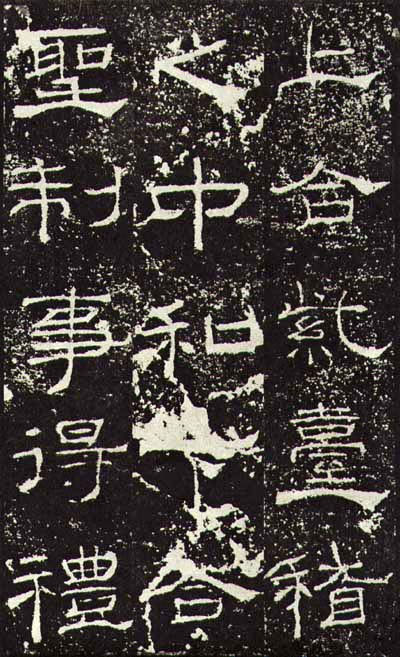 上合紫臺稽
之中和下合
聖制事得禮